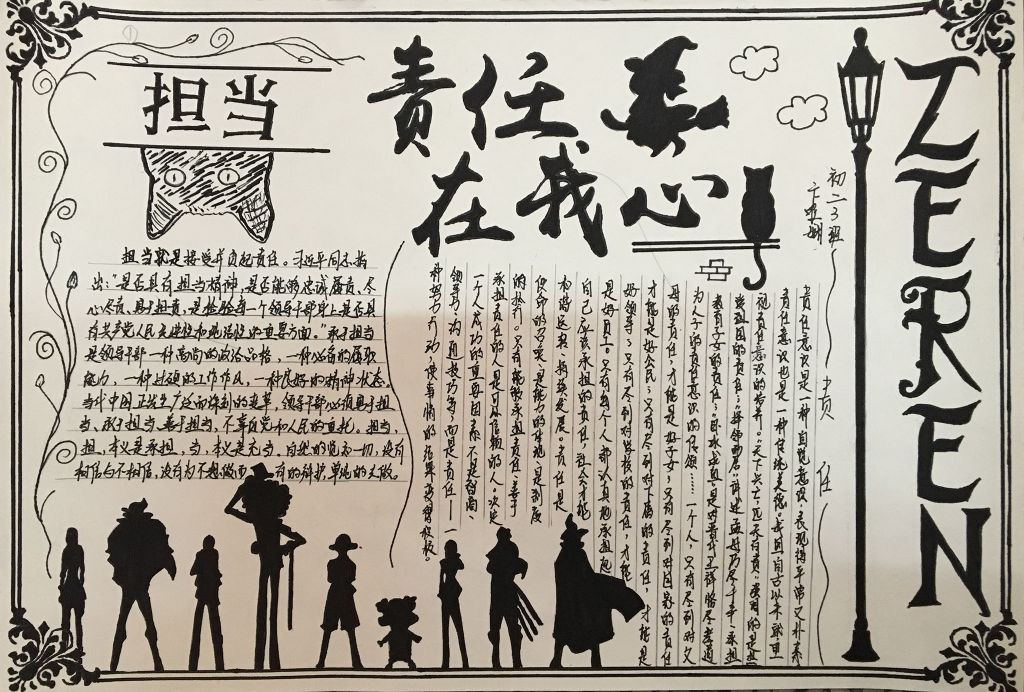 担当
责任
在我心
ZEREN
初二3班
担当就是接受并负起责任。习近平同志指
出:"是否具有担当精神,是否能够忠诚履责、尽
心尽责、勇于担责,是检验每一个领导干部身上是否具
有共产党人先进性和纯洁性的重要方面。"敢于担当
是领导干部一种高尚的政治品格,一种必备的履职
能力,一种过硬的工作作风,一种良好的精神状态。
当代中国正发生广泛而深刻的变革,领导干部必须勇于担
当、敢于担当、善于担当,不辜负党和人民的重托。担当,
担,本义是承担,当,本义是充当,
责任
责任意识是一种自觉意识,表现得平常又朴素
责任意识也是一种传统美德。我国自古以来就重
视责任意识的培养。"天下兴亡,匹夫有责"强调的是
教育子女的责任;"卧冰求鲤"是对
为人子的责任意识的传颂……一个人,只有尽到对父
母的责任,才能是好子女;只有尽到对国家的责任
才能是好公民;只有尽到对下属的责任,才能是
好领导;只有尽到对学校的责任,才能
是好员工。只有每个人都认真地承担起
自己应该承担的责任,社会才能
和谐运转、持续发展。责任是
使命的召唤、是能力的体现、是制度
的执行。只有能够承担责任、善于
承担责任的人才是可以信赖的人。决定
一个人成功的重要因素不是智商、
领导力、沟通技巧等,而是责任——一
种努力行动、使事情的结果变得更积极